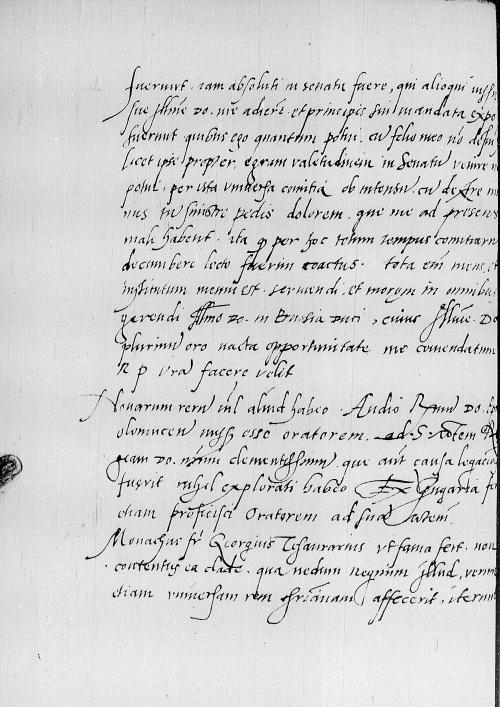 fuerunt. iam absoluti in senatu fuere, qui alioqui
sue Illme Do. me adiere. et principis sui mandata expo
suerunt quibus ego quantum potui, cu filio meo no defui
licet ipse propter egram valetudinem in senatu venire n
potui. per ista universa comitia ob intensu cu dextre
nus tu sinistre pedis dolorem. que me ad presens
male habent. ita q per hoc totum tempus comitiaru
decumbere lecto fuerim coactus. tota em mens et
institutum meum est servandi et morem in omnibus
gerendi Illmo Do. in Busia Duci, cuius Illme Do
plurimu oro nacta opportunitate me comendatum
R p vra facere velit
Novarum reru nil aliud habeo. Audio Rmu Do.
olomucen esse oratorem ad S. Ctem
geam Do. nrum clementissimum, que aut causa legacio
fuerit nihil explorati habeo Ex Ungaria
etiam proficisci oratorem ad sua Ctem.
Monachus fr Georgius Tesaurarius ut fama fert. non
contentus ea clade. qua nedum regnum illud, verum
etiam universam rem chrianam affecerit, iterum